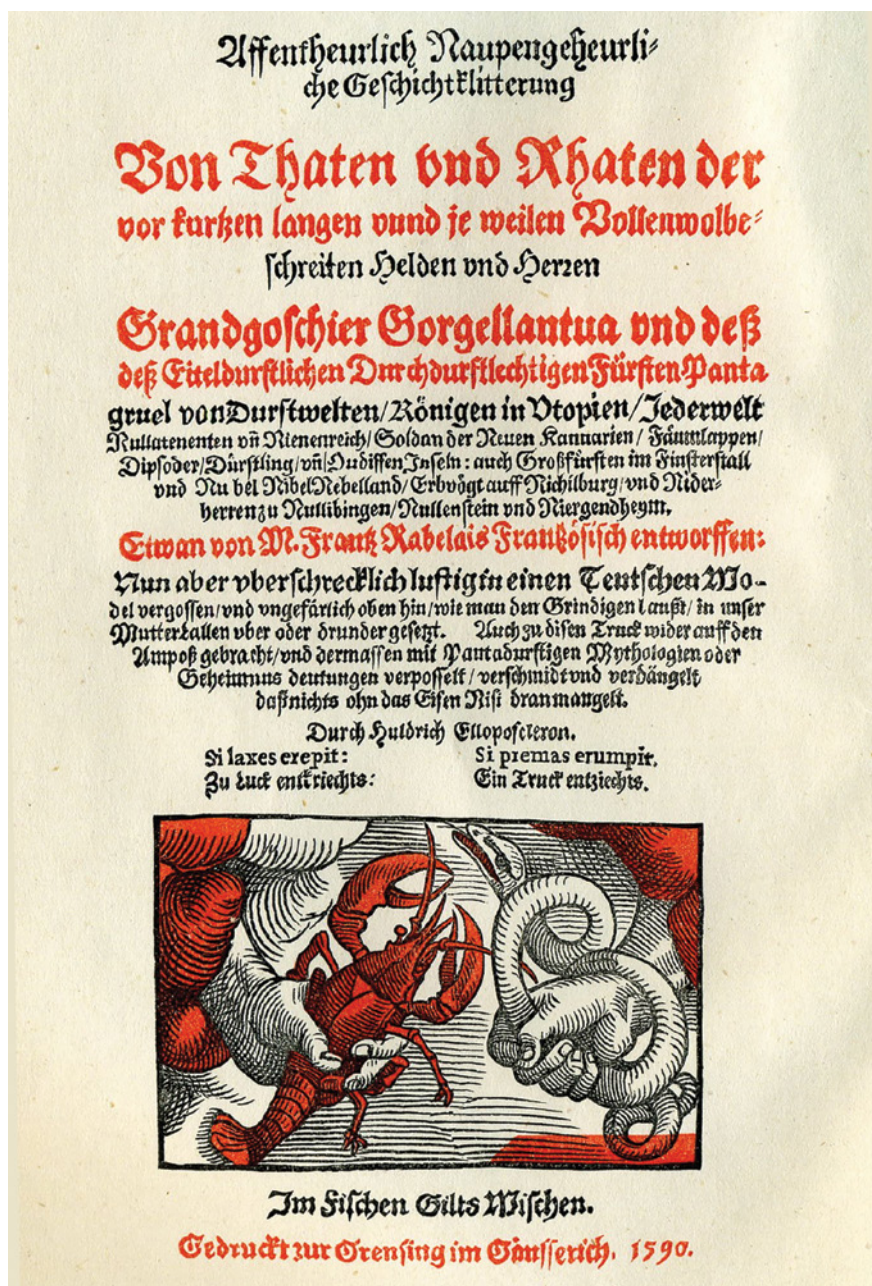 Affentheurlich Naupengeheurli-
che Geschichtklitterung
Von Thaten vnd Rhaten der
vor kurtzen langen vnnd je weilen Vollenwolbe-
schreiten Helden vnd Herren
Grandgoschier Gorgellantua vnd deß
deß Eiteldurstlichen Durchdurstlechtigen Fürsten Panta
gruel von Durstwelten/Königen in Vtopien/Jederwelt
Nullatenenten vñ Nienenreich/Soldan der Neuen Kannarien/Fäumlappen/
Dipsoder/Dürstling/vñ Oudissen Inseln: auch Großfürsten im Finsterstall
vnd Nu bel NibelNebelland/Erbvögt auff Nichilburg/vnd Nider-
herren zu Nullibingen/Nullenstein vnd Niergendheym.
Etwan von M. Frantz Rabelais Frantzösisch entworffen:
Nun aber vberschrecklich lustig in einen Teutschen Mo-
del vergossen/vnd vngefärlich oben hin/wie man den Grindigen laußt/in unser
MutterLallen vber oder drunder gesetzt. Auch zu disen Truck wider auff den
Ampoß gebracht/vnd dermassen mit Pantadurstigen Mythologien oder
Geheimnus deutungen verposselt/verschmidt vnd verdängelt
daß nichts ohn das Eisen Nisi dran mangelt.
Durch Huldrich Elloposcleron.
Si laxes erepit: Si premas erumpit.
Zu Luck entkriechts: Ein Truck entziechts.
Im Fischen Gilts Mischen.
Gedruckt zur Grensing im Gänsserich. 1590.